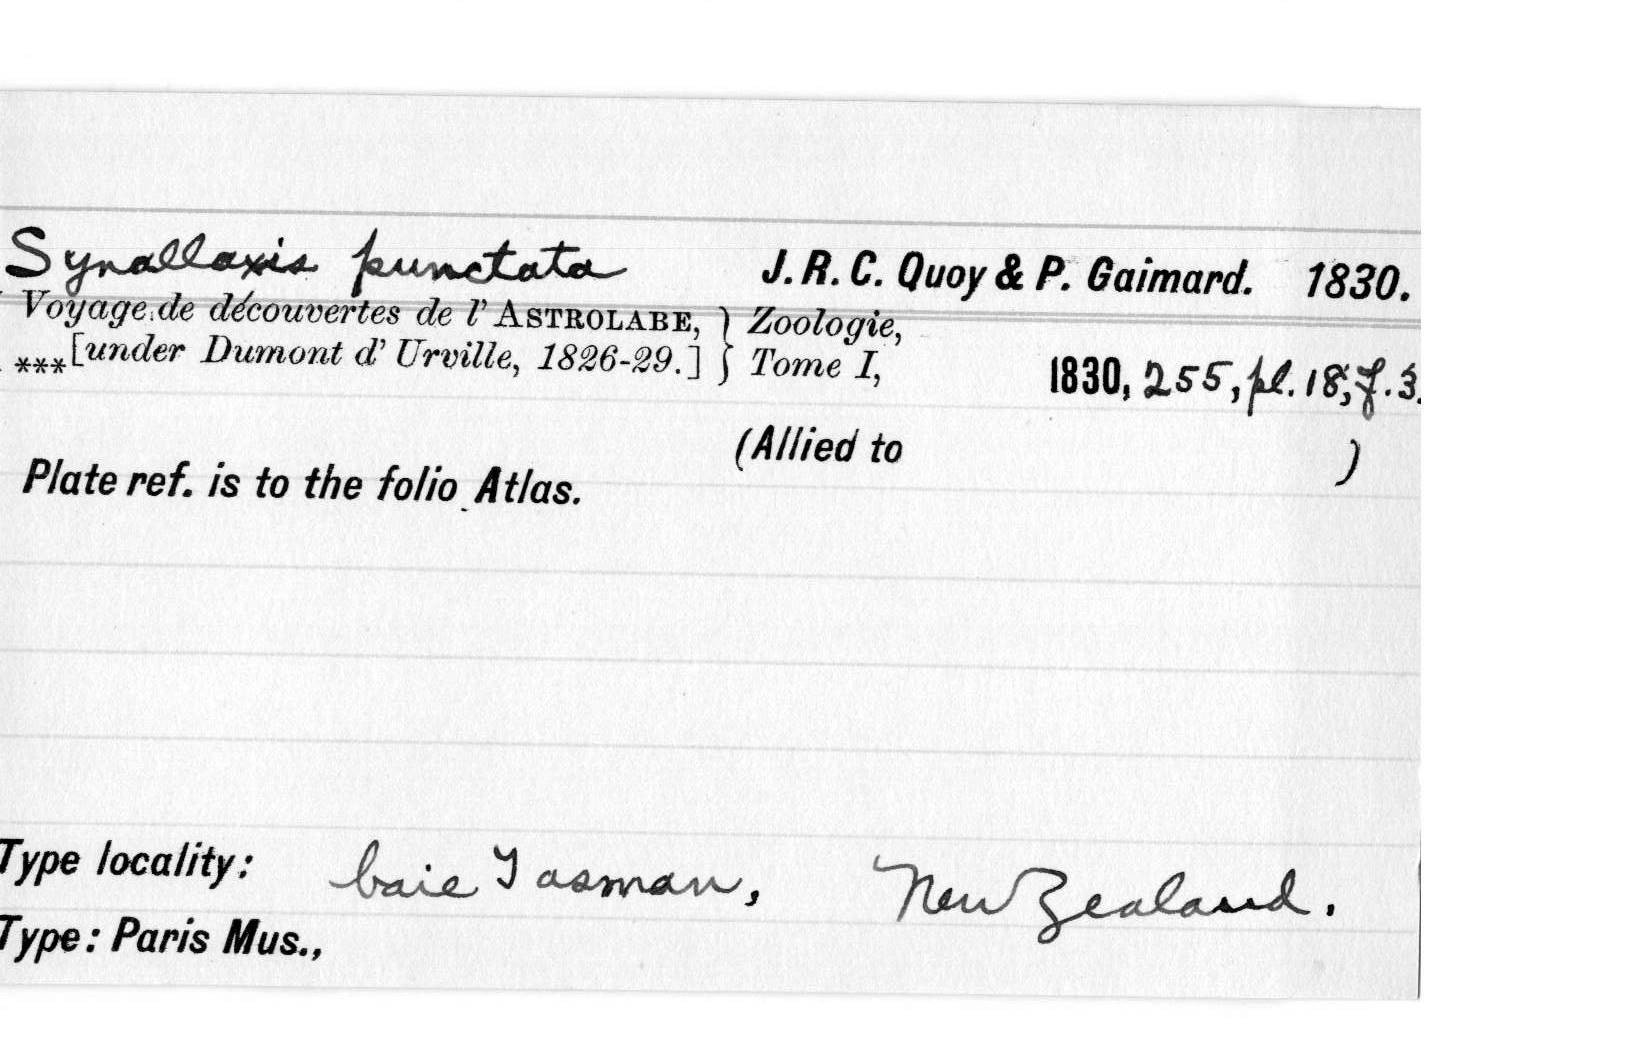 Synallaxis punctata J. R. C. Quoy & P. Gaimard. 1830.
Voyage de découvertes de l' ASTROLABE, } Zoologie,
***[under Dumont d' Urville, 1826-29.] } Tome I, 1830, 255, pl. 18, f. 3.
(Allied to )
Plate ref. is to the folio Atlas.
Type locality: baie Tasman, New Zealand.
Type: Paris Mus.,